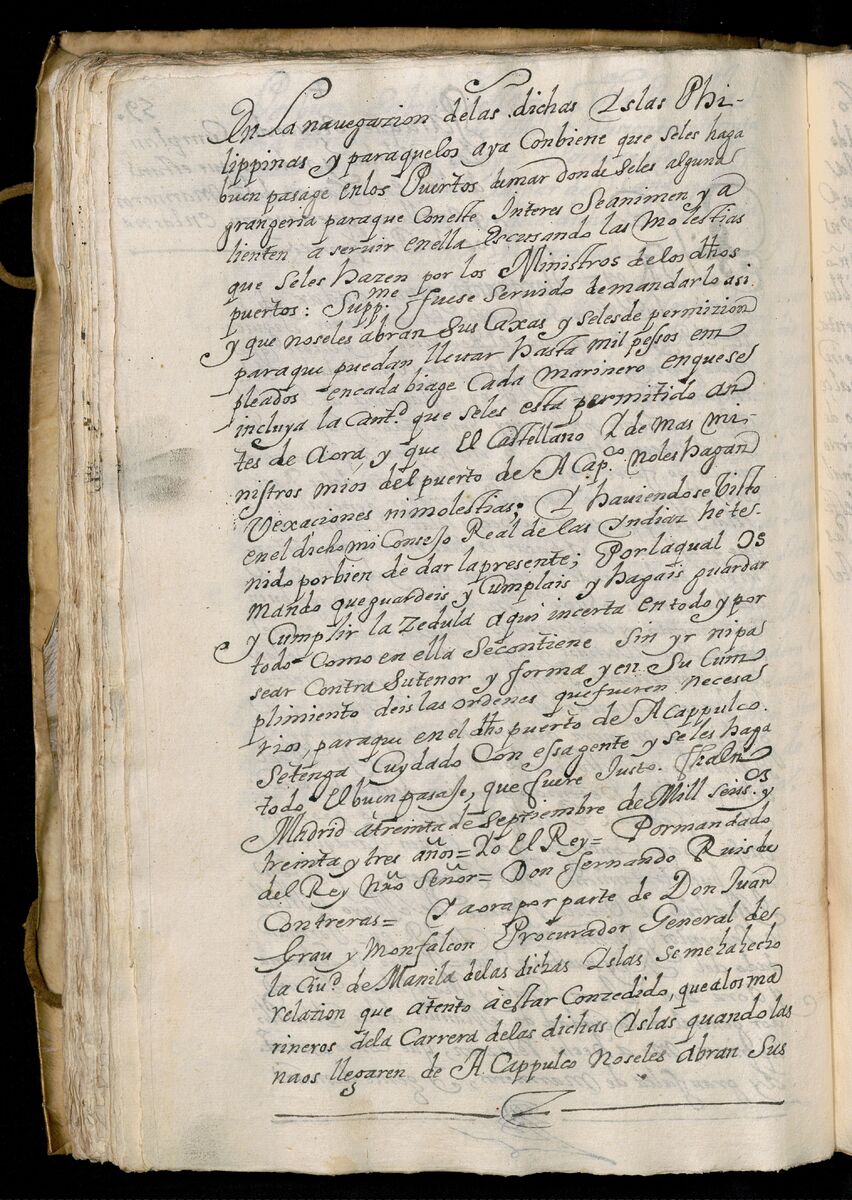 En La navegazion delas dichas Yslas Phi-
lippinas y paraquelos aya Conbiene que seles haga
buen pasage enlos Puertos demar donde seles alguna
grangeria paraque Coneste Interes Seanimen y a
lienten a servir enella Escusando las Molestias
que seles hazen por los Ministros delos dhos
puertos: Suppme fuese servido demandarlo asi
y que noseles abran Sus Caxas y selesde permizion
paraque puedan llevar hasta mil pessos em
pleados encada biage Cada marinero enquese
incluya la Cantd que seles esta permitido an
tes de Aora, y que El Castellano Y demas mi-
nistros mios del puerto de ACapco noles hagan
Vexaciones nimolestias; Y haviendose Visto
enel dicho mi Consejo Real de las Yndias he te-
nido porbien de dar lapresente; Porlaqual Os
mando queguardeis y Cumplais y hagais guardar
y Cumplir la Zedula aqui incerta entodo y por
todo Como en ella Secontiene Sin yr nipa
sear Contra Sutenor y forma y en Su Cum
plimiento deis las ordenes quefueren necesa
rios, paraque en el dho puerto de ACappulco
Setenga Cuydado Con essa gente y seles haga
todo El buen pasaje, que fuere Justo. fhaEn
Madrid atreinta de Septiembre de Mill seisos y
treinta y tres años= Yo El Rey= Pormandado
del Rey Nro Señor= Don fernando Ruis de
Contreras= Y aora por parte de Don Juan
Grau y Monfalcon Procurador General des
la Ciud de Manila delas dichas Yslas Semeha hecho
relazion que atento àestar Conzedido, que alos ma
rineros dela Carrera delas dichas Yslas quando las
naos llegaren de ACappulco Noseles abran Sus